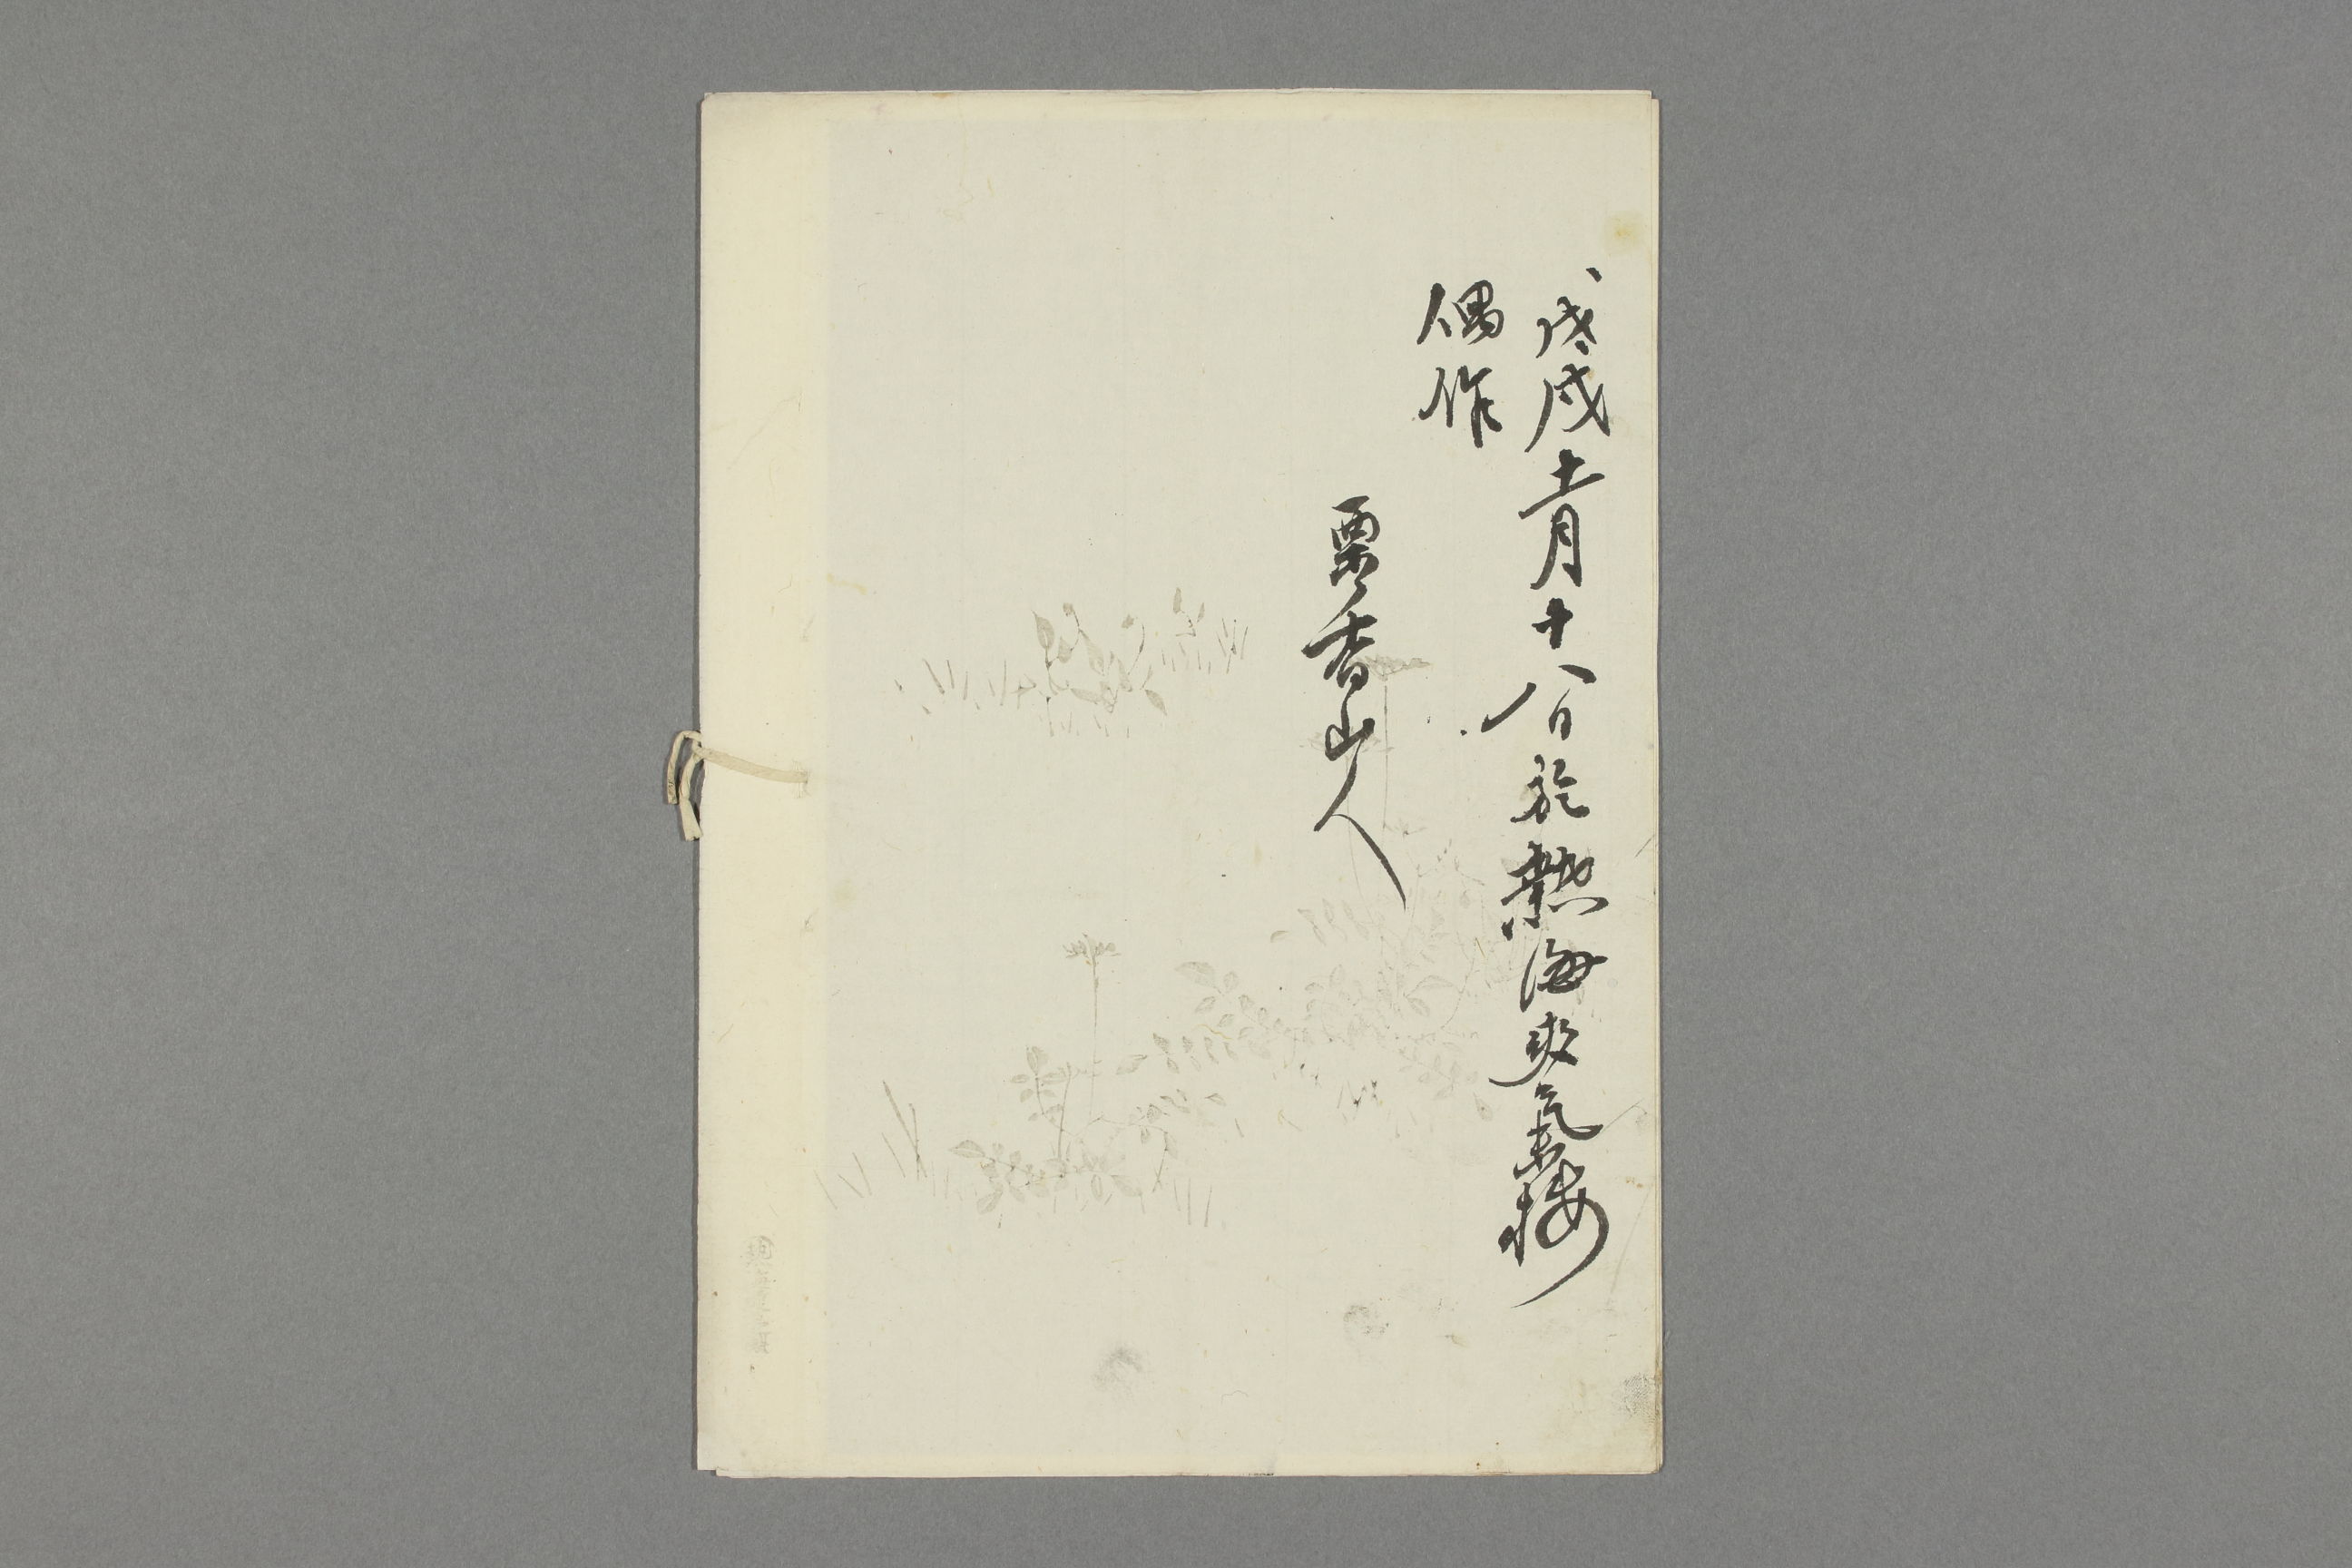 戊戌十一月十八日於熱海爽氣楼
偶作
栗香山人